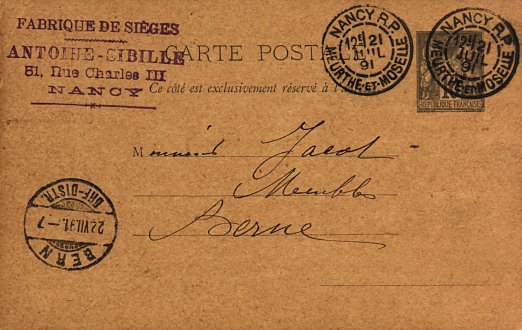 FABRIQUE DE SIÈGES
ANTOINE-SIBILLE
51, Rue Charles III
NANCY
CARTE POSTALE
Ce côté est exclusivement réservé à l'
NANCY R.P.
12E 21 JUIL 91
MEURTHE-ET-MOSELLE
NANCY R.P.
12E 21 JUIL 91
MEURTHE-ET-MOSELLE
REPUBLIQUE FRANÇAISE
Monsieur Jacot
Meubles
Berne
BRF-DISTR.
22.VII.91.-7
BERN